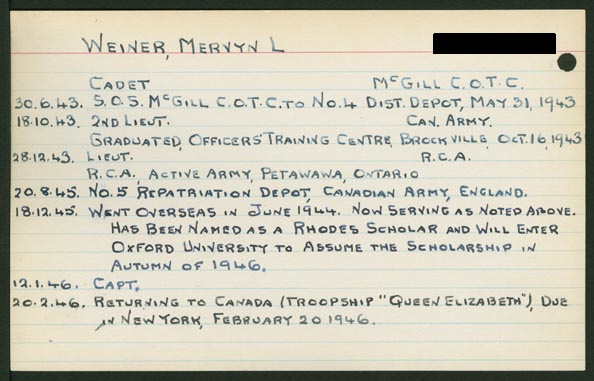 WEINER, MERVYN L
CADET McGILL C.O.T.C.
30.6.43. S.O.S. McGILL C.O.T.C. TO No.4 DIST. DEPOT, MAY 31, 1943
18.10.43. 2ND LIEUT. CAN. ARMY.
GRADUATED, OFFICERS' TRAINING CENTRE, BROCKVILLE, OCT. 16, 1943
28.12.43. LIEUT. R.C.A.
R.C.A., ACTIVE ARMY, PETAWAWA, ONTARIO
20.8.45. No. 5 REPATRIATION DEPOT, CANADIAN ARMY, ENGLAND.
18.12.45. WENT OVERSEAS IN JUNE 1944. NOW SERVING AS NOTED ABOVE.
HAS BEEN NAMED AS A RHODES SCHOLAR AND WILL ENTER
OXFORD UNIVERSITY TO ASSUME THE SCHOLARSHIP IN
AUTUMN OF 1946.
12.1.46. CAPT.
20.2.46. RETURNING TO CANADA (TROOPSHIP "QUEEN ELIZABETH"), DUE
IN NEW YORK, FEBRUARY 20 1946.